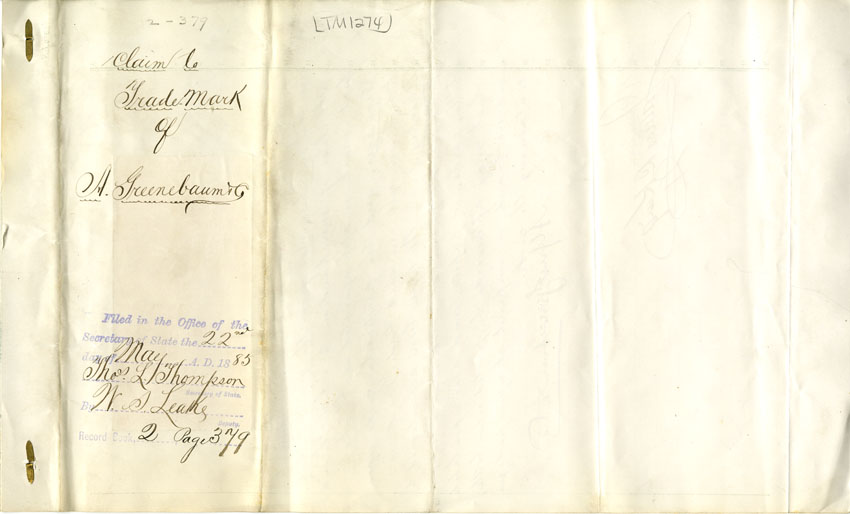 2-379
[TM1274]
Claim to
Trade Mark
of
A. Greenebaum & Co
Filed in the Office of the
Secretary of State the 22nd
day of May A.D. 1885
Thos L. Thompson
Secretary of State.
By W. S. Leake
Deputy.
Record Book, 2 Page 379